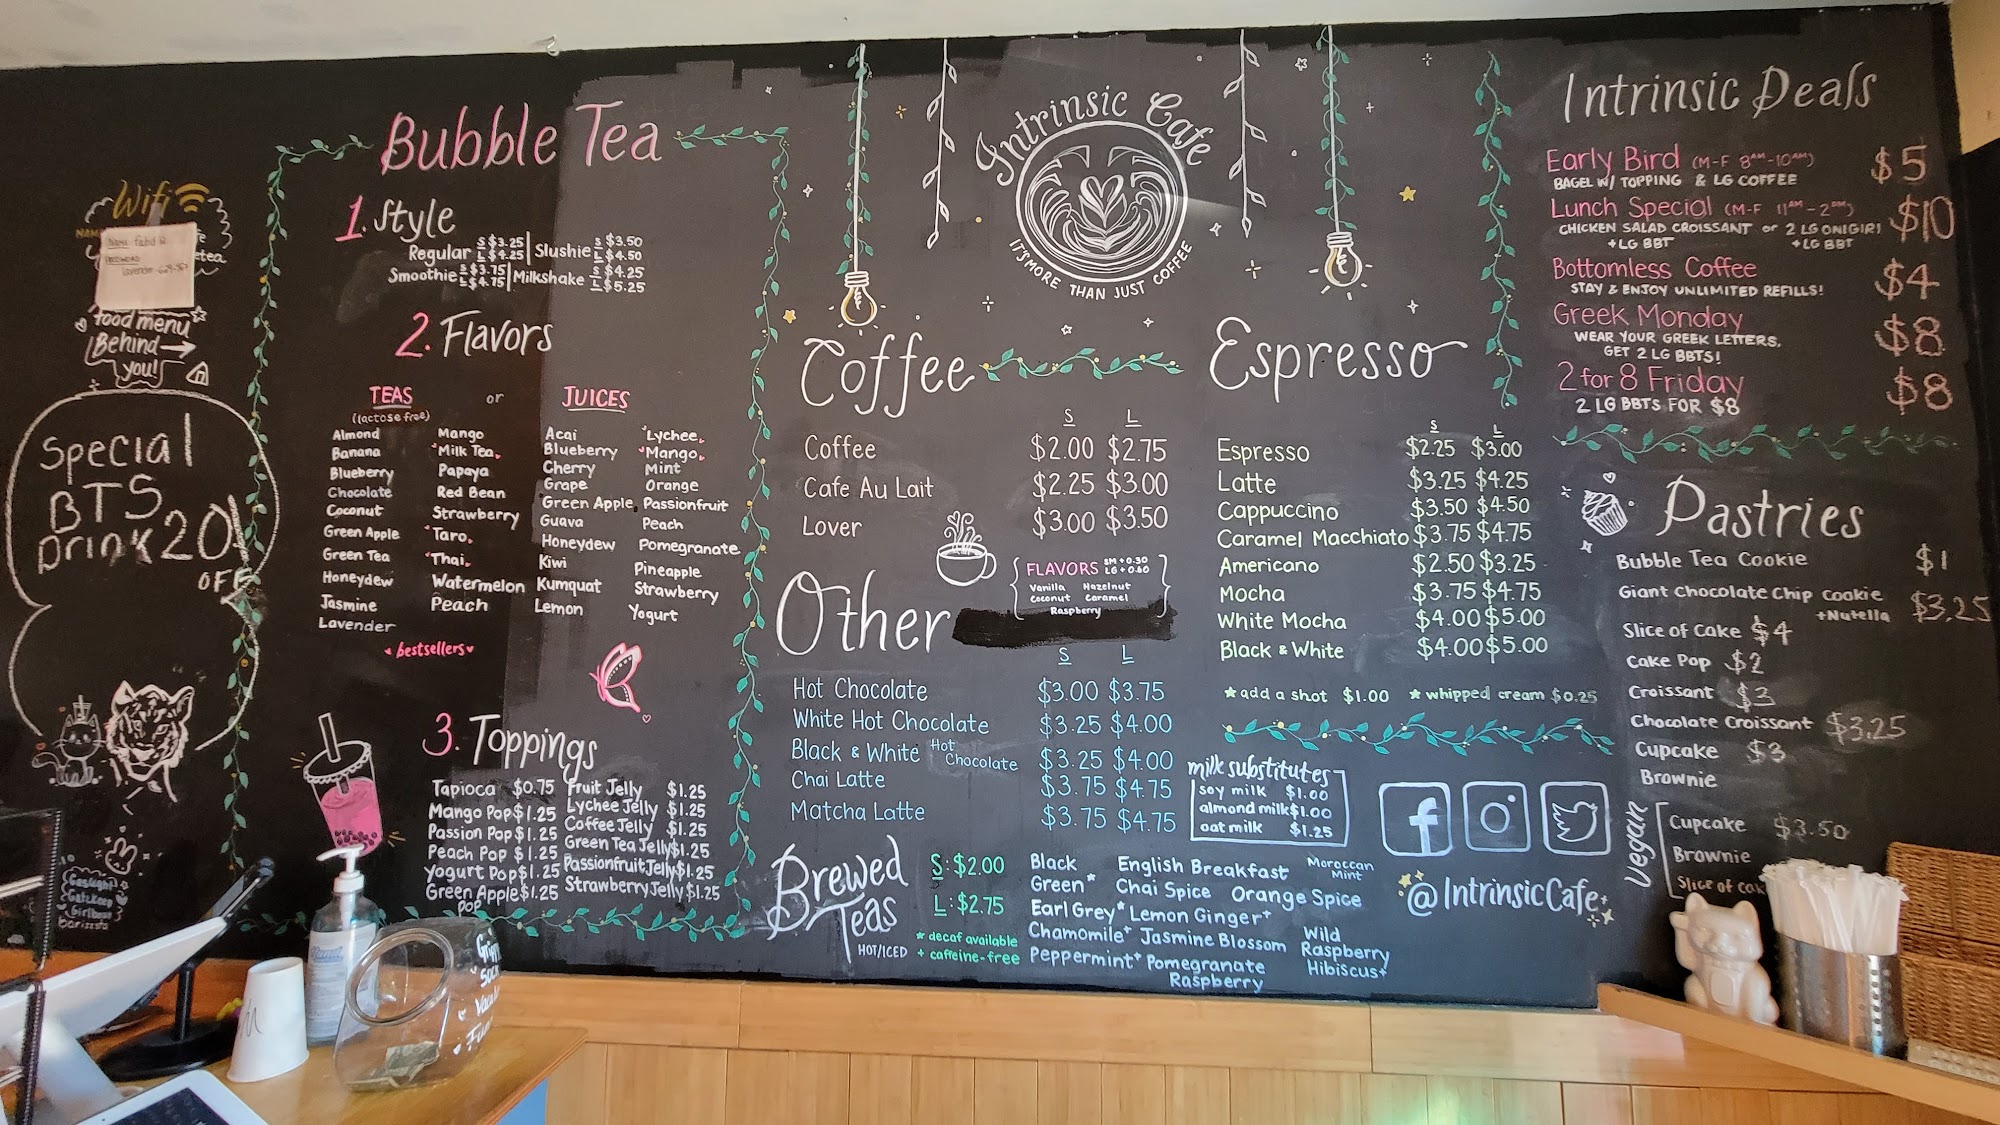 Wifi
Name: fabd
Password:
food menu
Behind →
you!
Special
BTS
Drink 20%
OFF
Gaslight
Gatekeep
Girlboss
baristas
Bubble Tea
1. Style
Regular S $3.25 L $4.25 | Slushie S $3.50 L $4.50
Smoothie S $3.75 L $4.75 | Milkshake S $4.25 L $5.25
2. Flavors
TEAS or JUICES
(lactose free)
Almond
Banana
Blueberry
Chocolate
Coconut
Green Apple
Green Tea
Honeydew
Jasmine
Lavender
Mango
Milk Tea
Papaya
Red Bean
Strawberry
Taro
Thai
Watermelon
Peach
Acai
Blueberry
Cherry
Grape
Green Apple
Guava
Honeydew
Kiwi
Kumquat
Lemon
Lychee
Mango
Mint
Orange
Passionfruit
Peach
Pomegranate
Pineapple
Strawberry
Yogurt
bestsellers
3. Toppings
Tapioca $0.75
Mango Pop $1.25
Passion Pop $1.25
Peach Pop $1.25
Yogurt Pop $1.25
Green Apple $1.25
Pop
Fruit Jelly $1.25
Lychee Jelly $1.25
Coffee Jelly $1.25
Green Tea Jelly $1.25
Passionfruit Jelly $1.25
Strawberry Jelly $1.25
Intrinsic Cafe
IT'S MORE THAN JUST COFFEE
Coffee
S L
Coffee $2.00 $2.75
Cafe Au Lait $2.25 $3.00
Lover $3.00 $3.50
FLAVORS SM +0.30 LG +0.60
Vanilla Hazelnut
Coconut Caramel
Raspberry
Other
S L
Hot Chocolate $3.00 $3.75
White Hot Chocolate $3.25 $4.00
Black & White Hot Chocolate $3.25 $4.00
Chai Latte $3.75 $4.75
Matcha Latte $3.75 $4.75
Brewed
Teas
HOT/ICED
S: $2.00
L: $2.75
* decaf available
+ caffeine-free
Black
Green*
Earl Grey*
Chamomile+
Peppermint+
English Breakfast
Chai Spice Orange Spice
Lemon Ginger+
Jasmine Blossom
Pomegranate
Raspberry
Moroccan
Mint
Wild
Raspberry
Hibiscus+
Espresso
S L
Espresso $2.25 $3.00
Latte $3.25 $4.25
Cappuccino $3.50 $4.50
Caramel Macchiato $3.75 $4.75
Americano $2.50 $3.25
Mocha $3.75 $4.75
White Mocha $4.00 $5.00
Black & White $4.00 $5.00
★ add a shot $1.00 ★ whipped cream $0.25
milk substitutes
soy milk $1.00
almond milk $1.00
oat milk $1.25
f
@IntrinsicCafe
Intrinsic Deals
Early Bird (M-F 8AM-10AM) $5
BAGEL W/ TOPPING & LG COFFEE
Lunch Special (M-F 11AM-2PM) $10
CHICKEN SALAD CROISSANT or 2 LG ONIGIRI
+LG BBT +LG BBT
Bottomless Coffee $4
STAY & ENJOY UNLIMITED REFILLS!
Greek Monday $8
WEAR YOUR GREEK LETTERS,
GET 2 LG BBTS!
2 for 8 Friday $8
2 LG BBTS FOR $8
Pastries
Bubble Tea Cookie $1
Giant Chocolate Chip Cookie $3.25
+Nutella
Slice of Cake $4
Cake Pop $2
Croissant $3
Chocolate Croissant $3.25
Cupcake $3
Brownie
Vegan
Cupcake $3.50
Brownie
Slice of